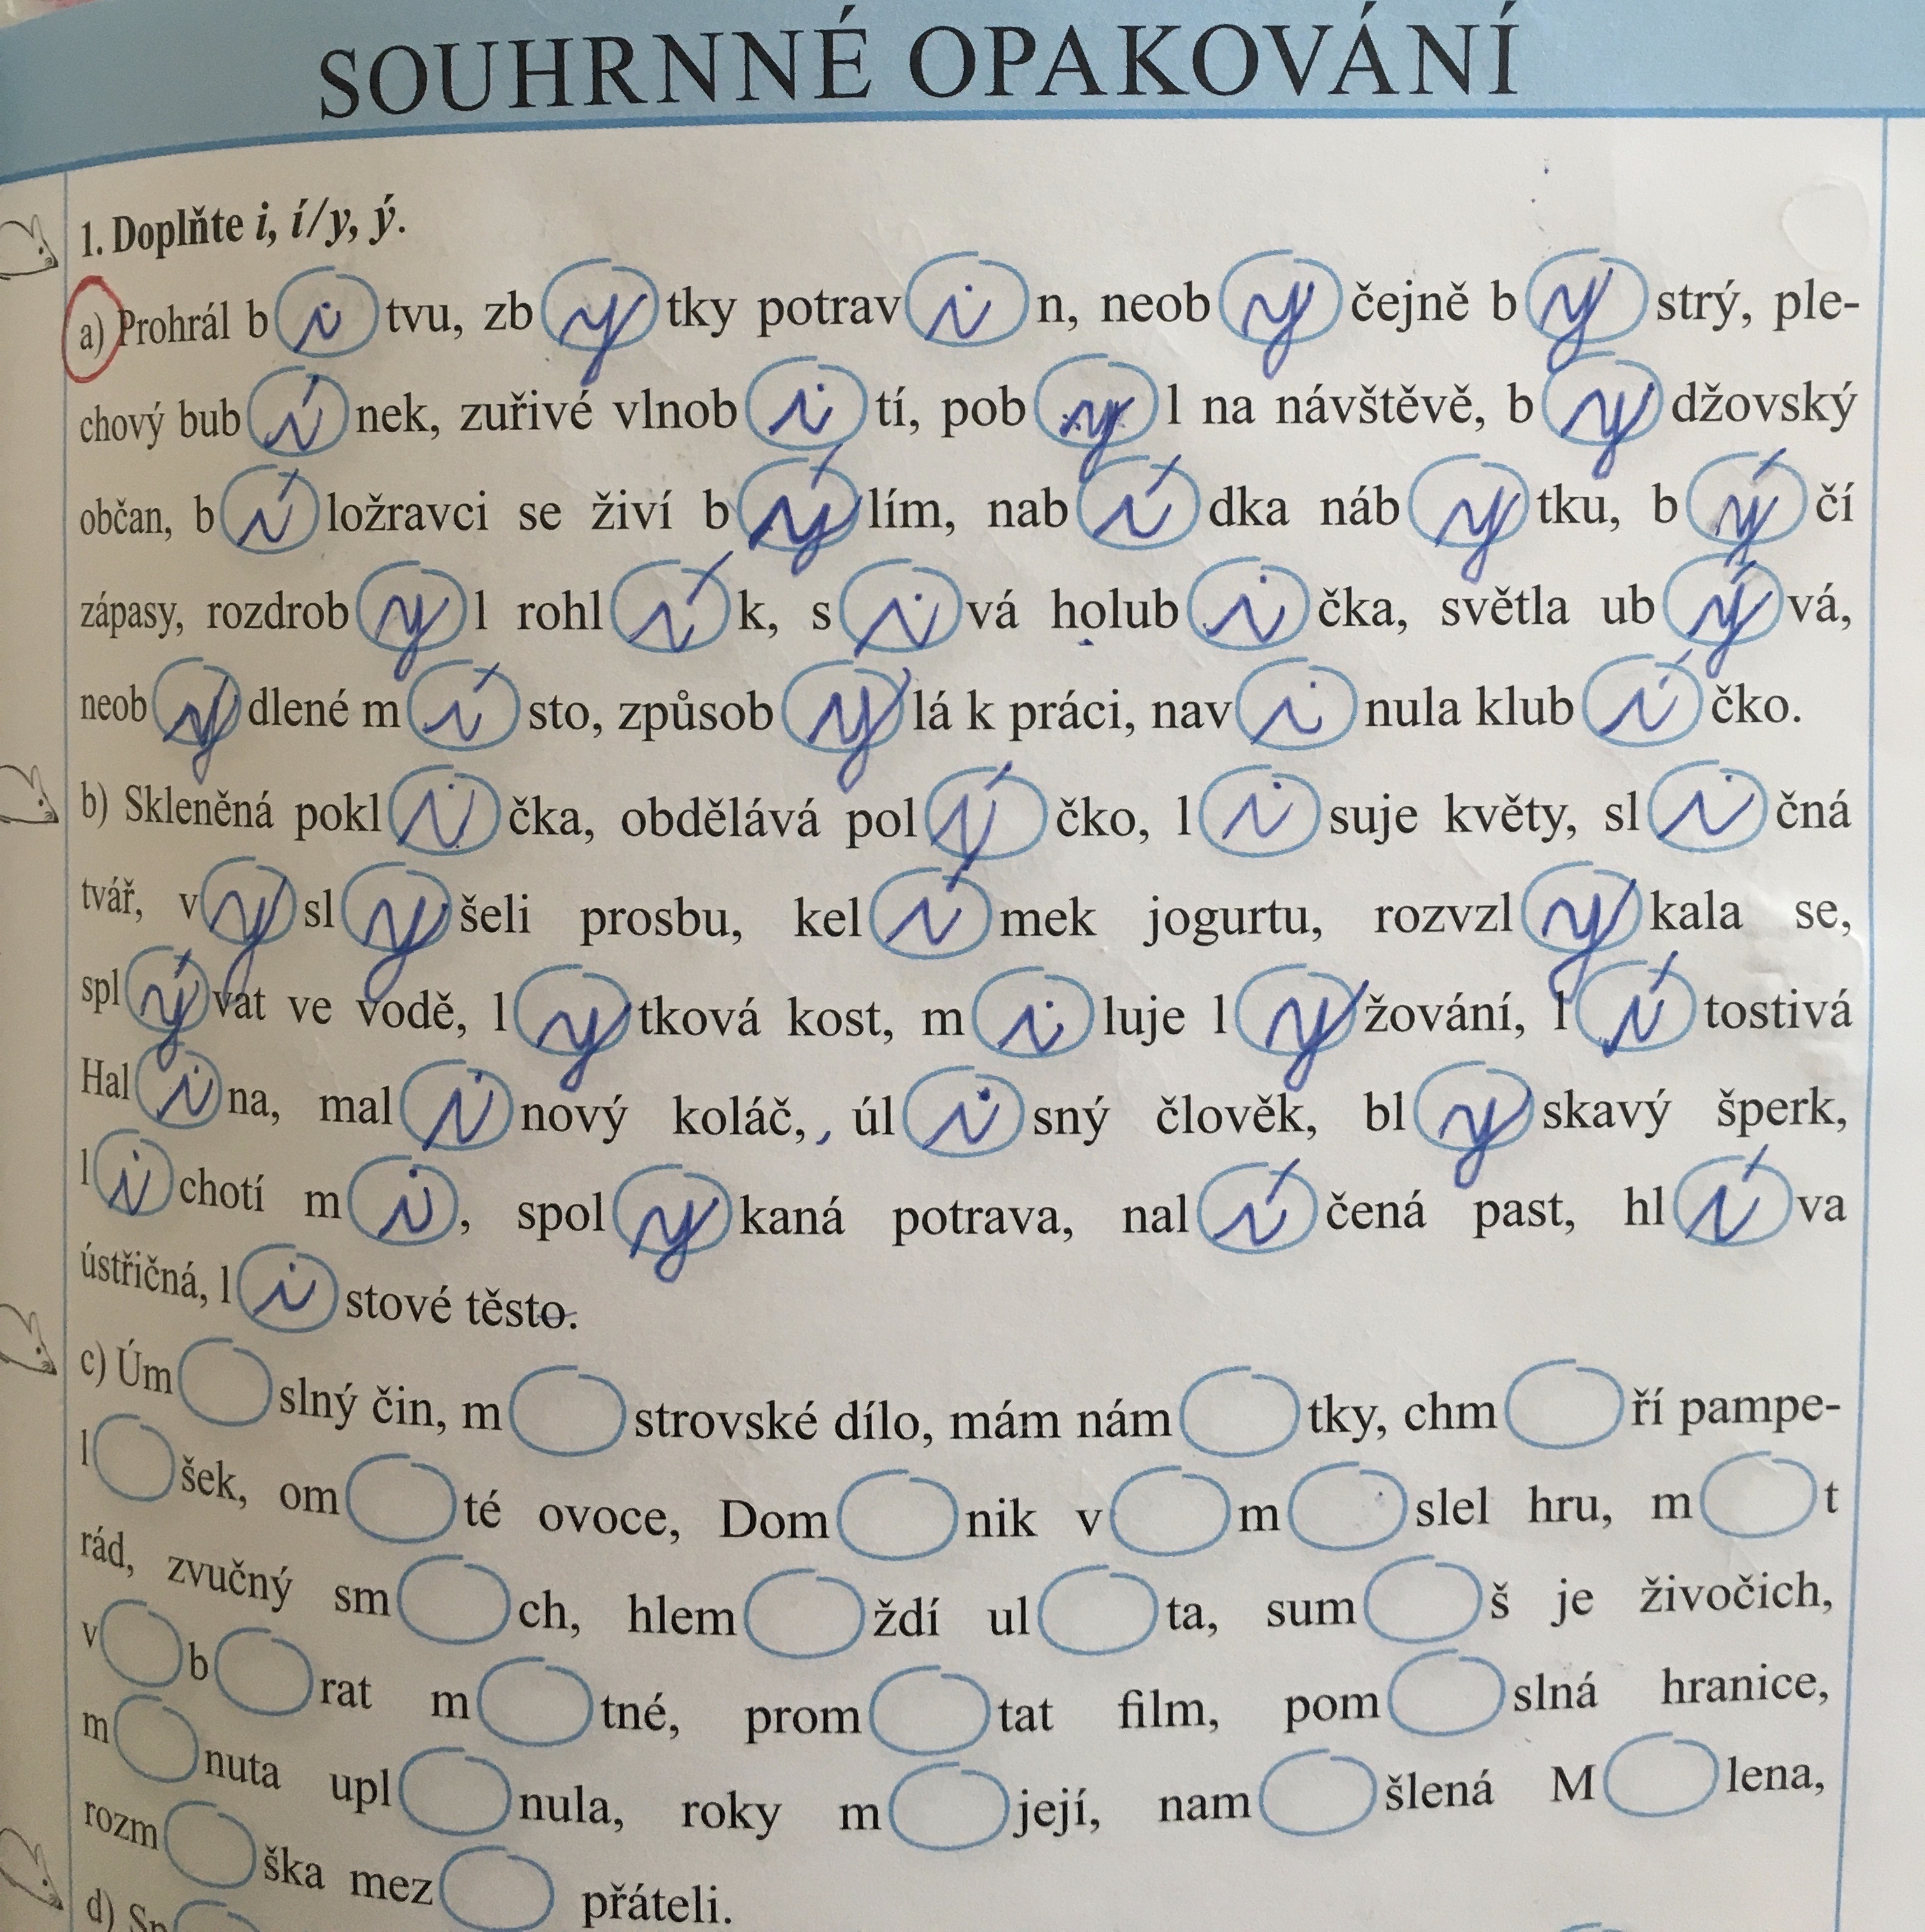 SOUHRNNÉ OPAKOVÁNÍ
1. Doplňte i, í/y, ý.
a) Prohrál bitvu, zbytky potravin, neobyčejně bystrý, ple-
chový bubínek, zuřivé vlnobití, pobyl na návštěvě, bydžovský
občan, bíložravci se živí býlím, nabídka nábytku, býčí
zápasy, rozdrobyl rohlík, sivá holubička, světla ubývá,
neobydlené místo, způsobylá k práci, navinula klubíčko.
b) Skleněná poklička, obdělává políčko, lisuje květy, sličná
tvář, vyslyšeli prosbu, kelímek jogurtu, rozvzlykala se,
splývat ve vodě, lytková kost, miluje lyžování, lítostivá
Halina, malinový koláč, úlisný člověk, blyskavý šperk,
lichotí mi, spolykaná potrava, nalíčená past, hlíva
ústřičná, listové těsto.
c) Úm slný čin, m strovské dílo, mám nám tky, chm ří pampe-
l šek, om té ovoce, Dom nik v m slel hru, m t
rád, zvučný sm ch, hlem ždí ul ta, sum š je živočich,
v b rat m tné, prom tat film, pom slná hranice,
m nuta upl nula, roky m její, nam šlená M lena,
rozm ška mez přáteli.
d) Sp